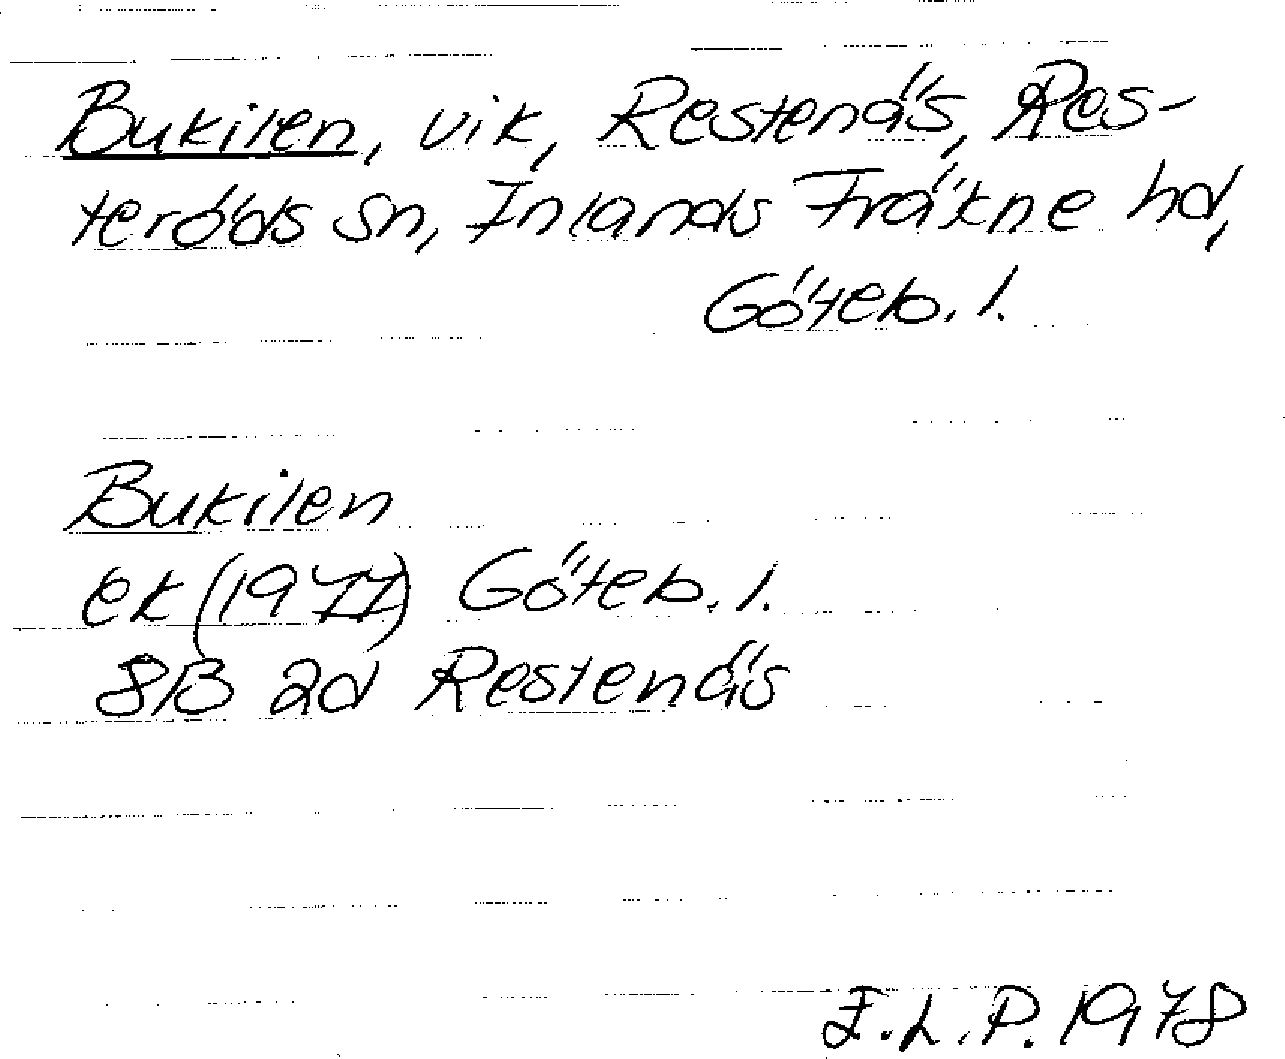 Bukilen, vik, Restenäs, Res-
teröds sn, Inlands Fräkne hd,
Göteb. l.
Bukilen
ek (1977) Göteb. l.
8B 2d Restenäs
I.L.P. 1978